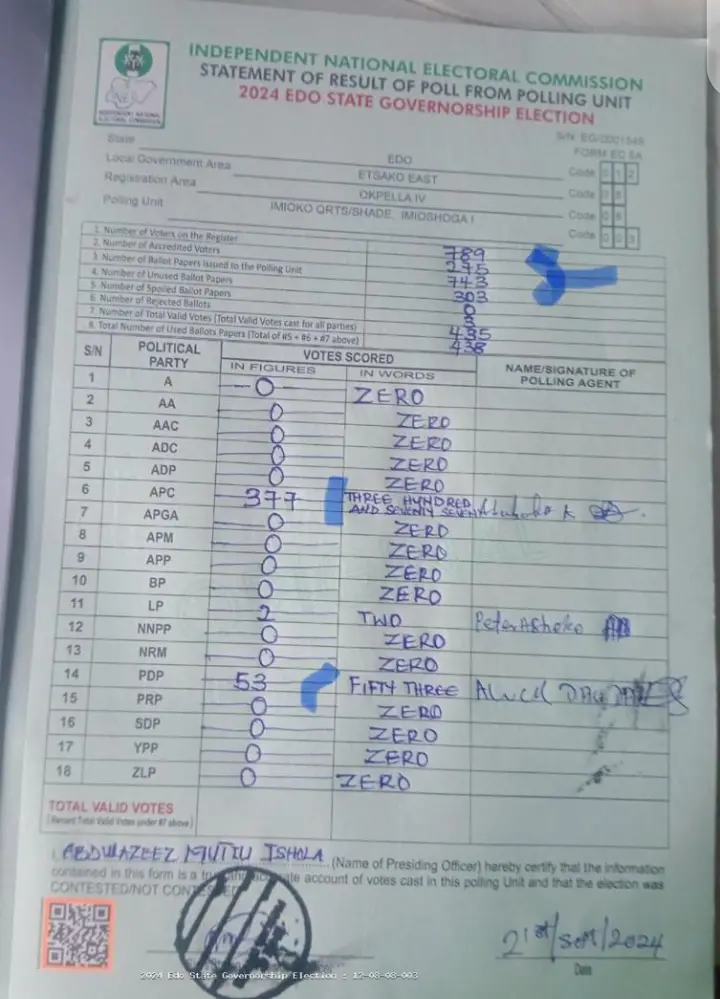 INDEPENDENT NATIONAL ELECTORAL COMMISSION
STATEMENT OF RESULT OF POLL FROM POLLING UNIT
2024 EDO STATE GOVERNORSHIP ELECTION
INEC
INDEPENDENT NATIONAL ELECTORAL COMMISSION
S/N: EG/0001549
FORM EC 8A
State EDO Code 012
Local Government Area ETSAKO EAST Code 08
Registration Area OKPELLA IV Code 08
Polling Unit IMIOKO QRTS/SHADE, IMIOSHOGA I Code 003
1. Number of Voters on the Register 789
2. Number of Accredited Voters
3. Number of Ballot Papers Issued to the Polling Unit 743
4. Number of Unused Ballot Papers 303
5. Number of Spoiled Ballot Papers 0
6. Number of Rejected Ballots
7. Number of Total Valid Votes (Total Valid Votes cast for all parties) 435
8. Total Number of Used Ballots Papers (Total of #5 + #6 + #7 above) 438
S/N POLITICAL PARTY VOTES SCORED NAME/SIGNATURE OF POLLING AGENT
IN FIGURES IN WORDS
1 A 0 ZERO
2 AA 0 ZERO
3 AAC 0 ZERO
4 ADC 0 ZERO
5 ADP 0 ZERO
6 APC 377 THREE HUNDRED AND SEVENTY SEVEN
7 APGA 0 ZERO
8 APM 0 ZERO
9 APP 0 ZERO
10 BP 0 ZERO
11 LP 2 TWO Peter
12 NNPP 0 ZERO
13 NRM 0 ZERO
14 PDP 53 FIFTY THREE
15 PRP 0 ZERO
16 SDP 0 ZERO
17 YPP 0 ZERO
18 ZLP 0 ZERO
TOTAL VALID VOTES
(Record Total Valid Votes under #7 above)
I, ABDULAZEEZ MUTIU ISHOLA (Name of Presiding Officer) hereby certify that the information
contained in this form is a true and accurate account of votes cast in this polling Unit and that the election was
CONTESTED/NOT CONTESTED
21st/Sept/2024
Date
2024 Edo State Governorship Election : 12-08-08-003